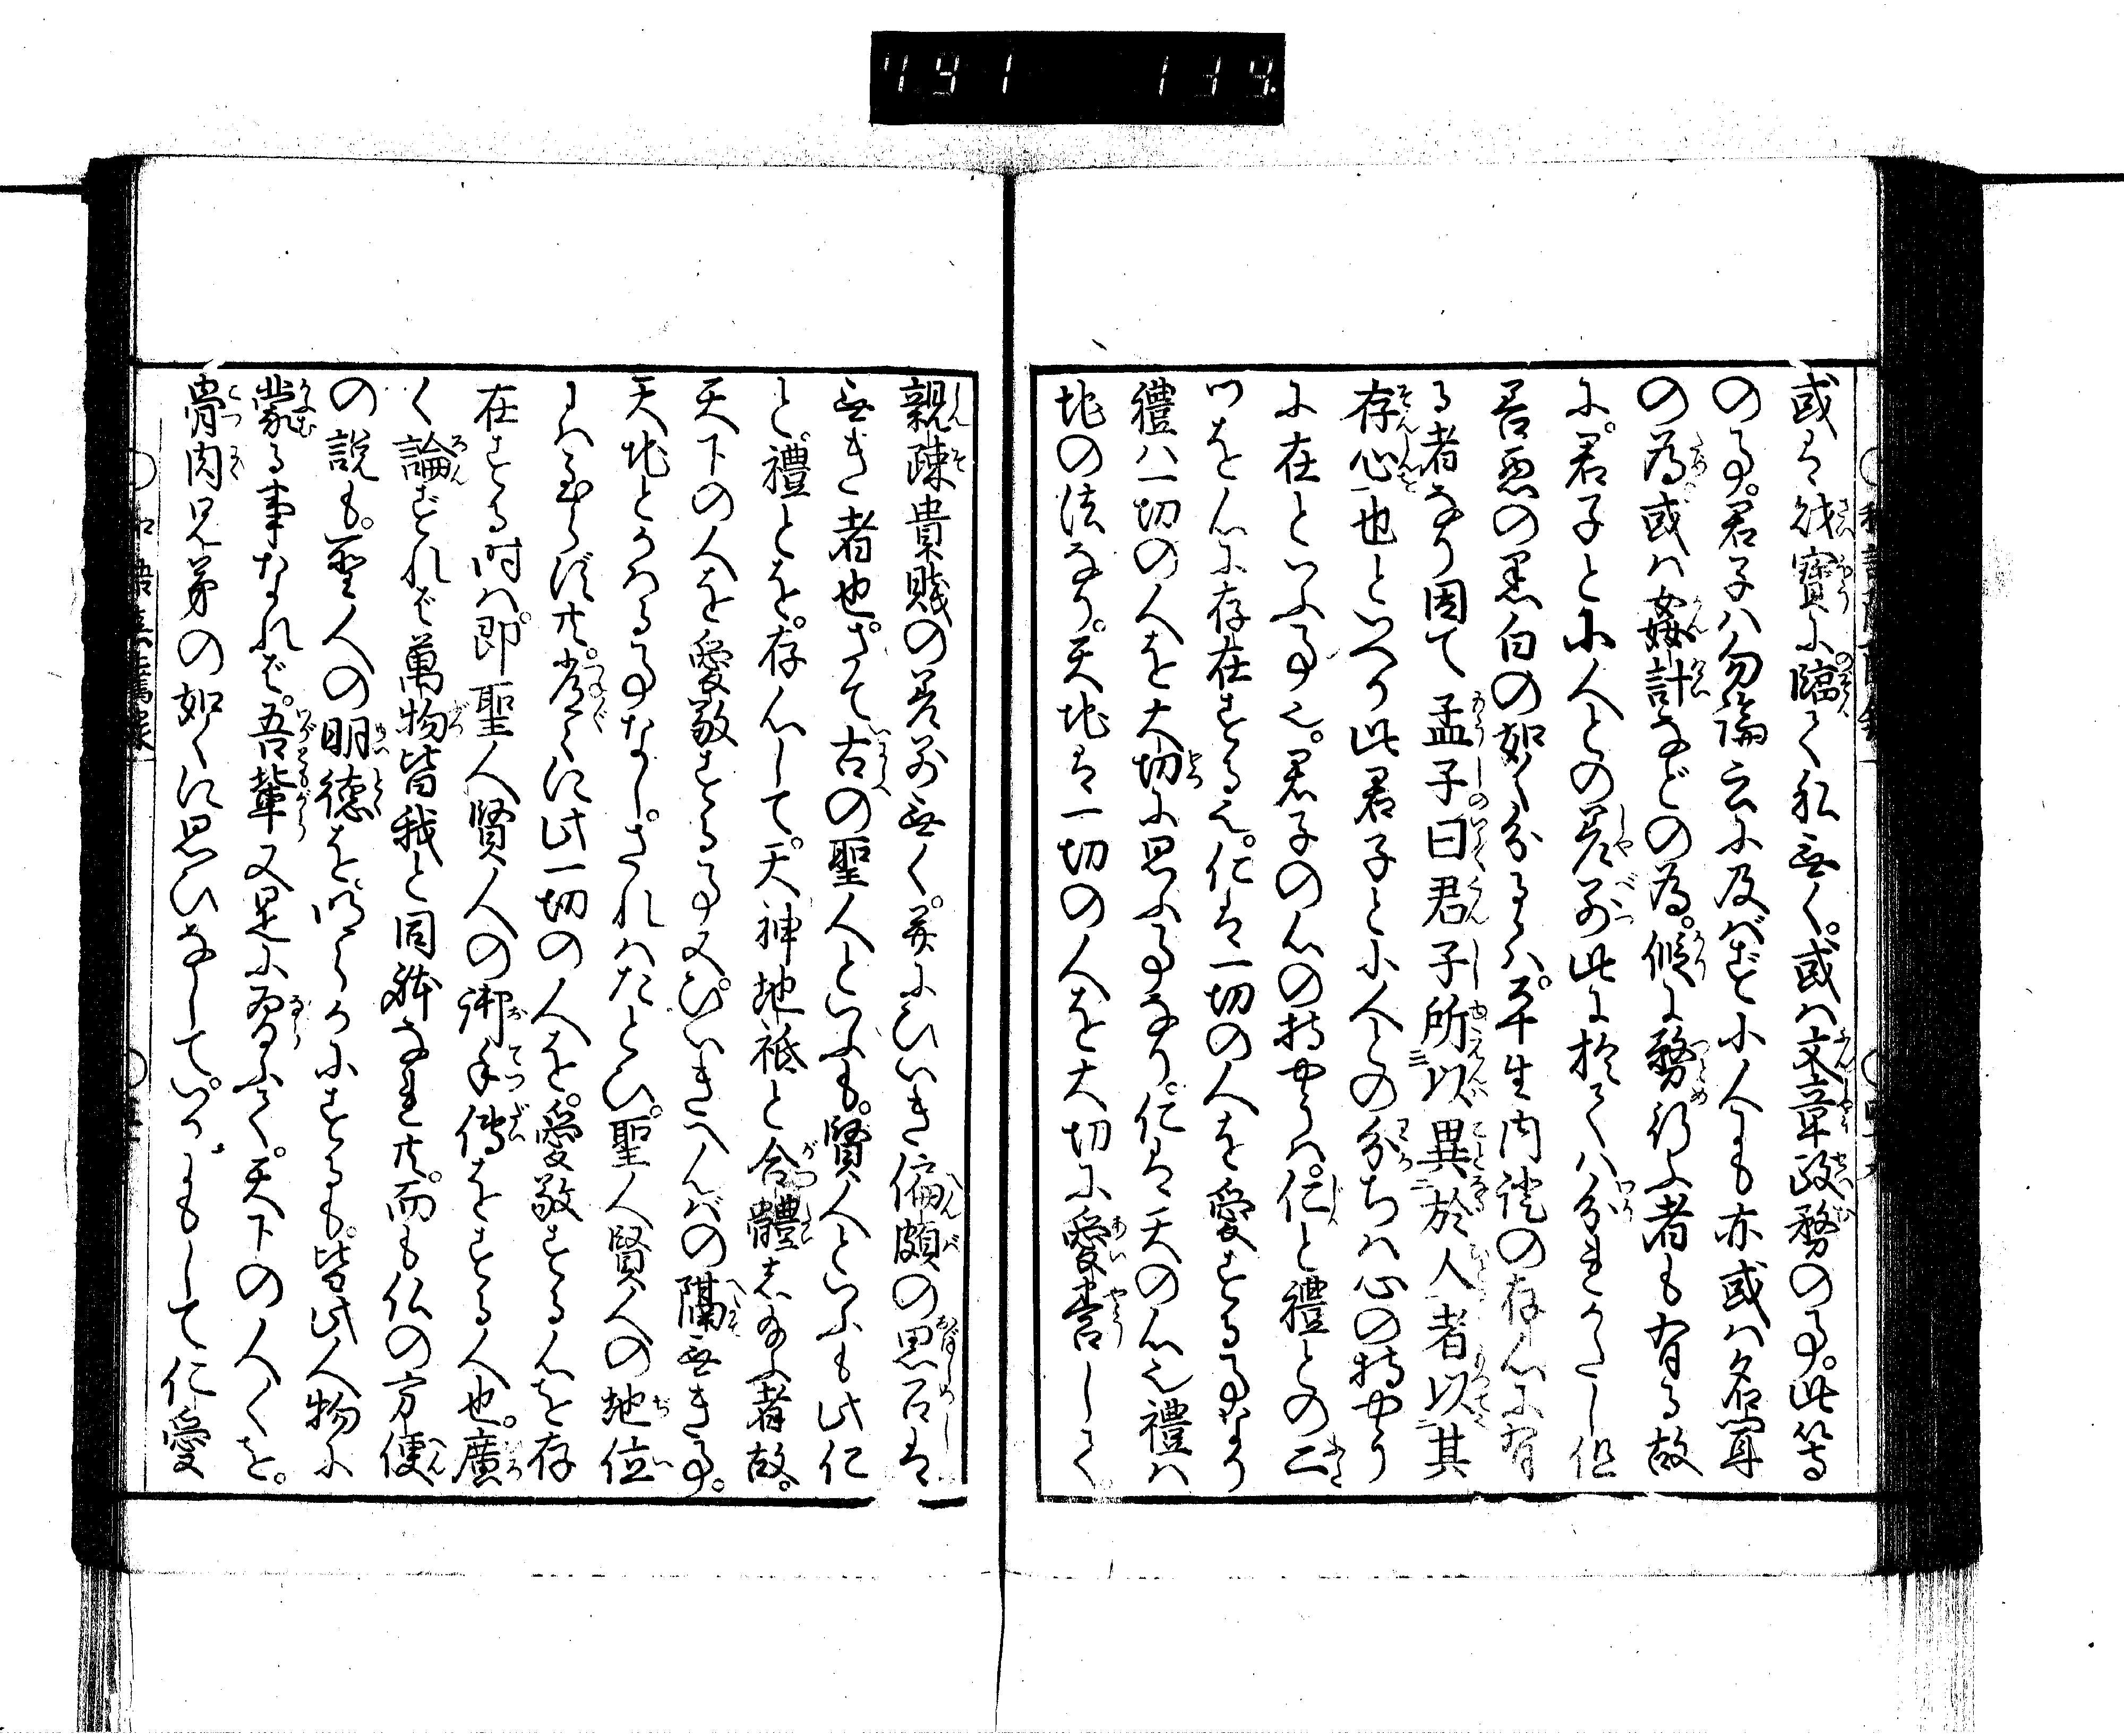 或は財寳に臨て私無く。或は文章政務の事。此等
の事。君子ハ勿論云に及バず小人も亦或ハ名聞
の為或ハ姦計などの為。假に務行ふ者も有る故
に。君子と小人との差別此に於てハ分れがたし但
善悪の黒白の如く分るハ。平生内證の存心に有
る者なり因て孟子曰君子所以異於人者以其
存心也といへり此君子と小人との分ちハ心の持やう
に在といふ事也。君子の心の持やうハ。仁と禮との二
つを心に存在する也。仁は一切の人を愛する事なり
禮ハ一切の人を大切に思ふ事なり。仁は天の心也禮ハ
地の法なり。天地は一切の人を大切に愛養して。
親疎貴賤の差別無く。更にひいき偏頗の思召は
無き者也。さて古の聖人といふも。賢人といふも此仁
と。禮とを。存心して。天神地祗と合體し給ふ者故。
天下の人を愛敬する事又。ひいきへんばの隔無き事。
天地とかハる事なし。されハたとひ。聖人賢人の地位
にハ至らず共。常に此一切の人を。愛敬する心を存
在する時ハ。即聖人賢人の御手傳をする人也。廣
く論ずれば萬物皆我と同躰なれ共。而も仏の方便
の説も。聖人の明徳を明らかにするも。皆此人物に
蒙る事なれば。吾輩又是に習ふて。天下の人〱を。
骨肉兄弟の如くに思ひなして。いかにもして仁愛